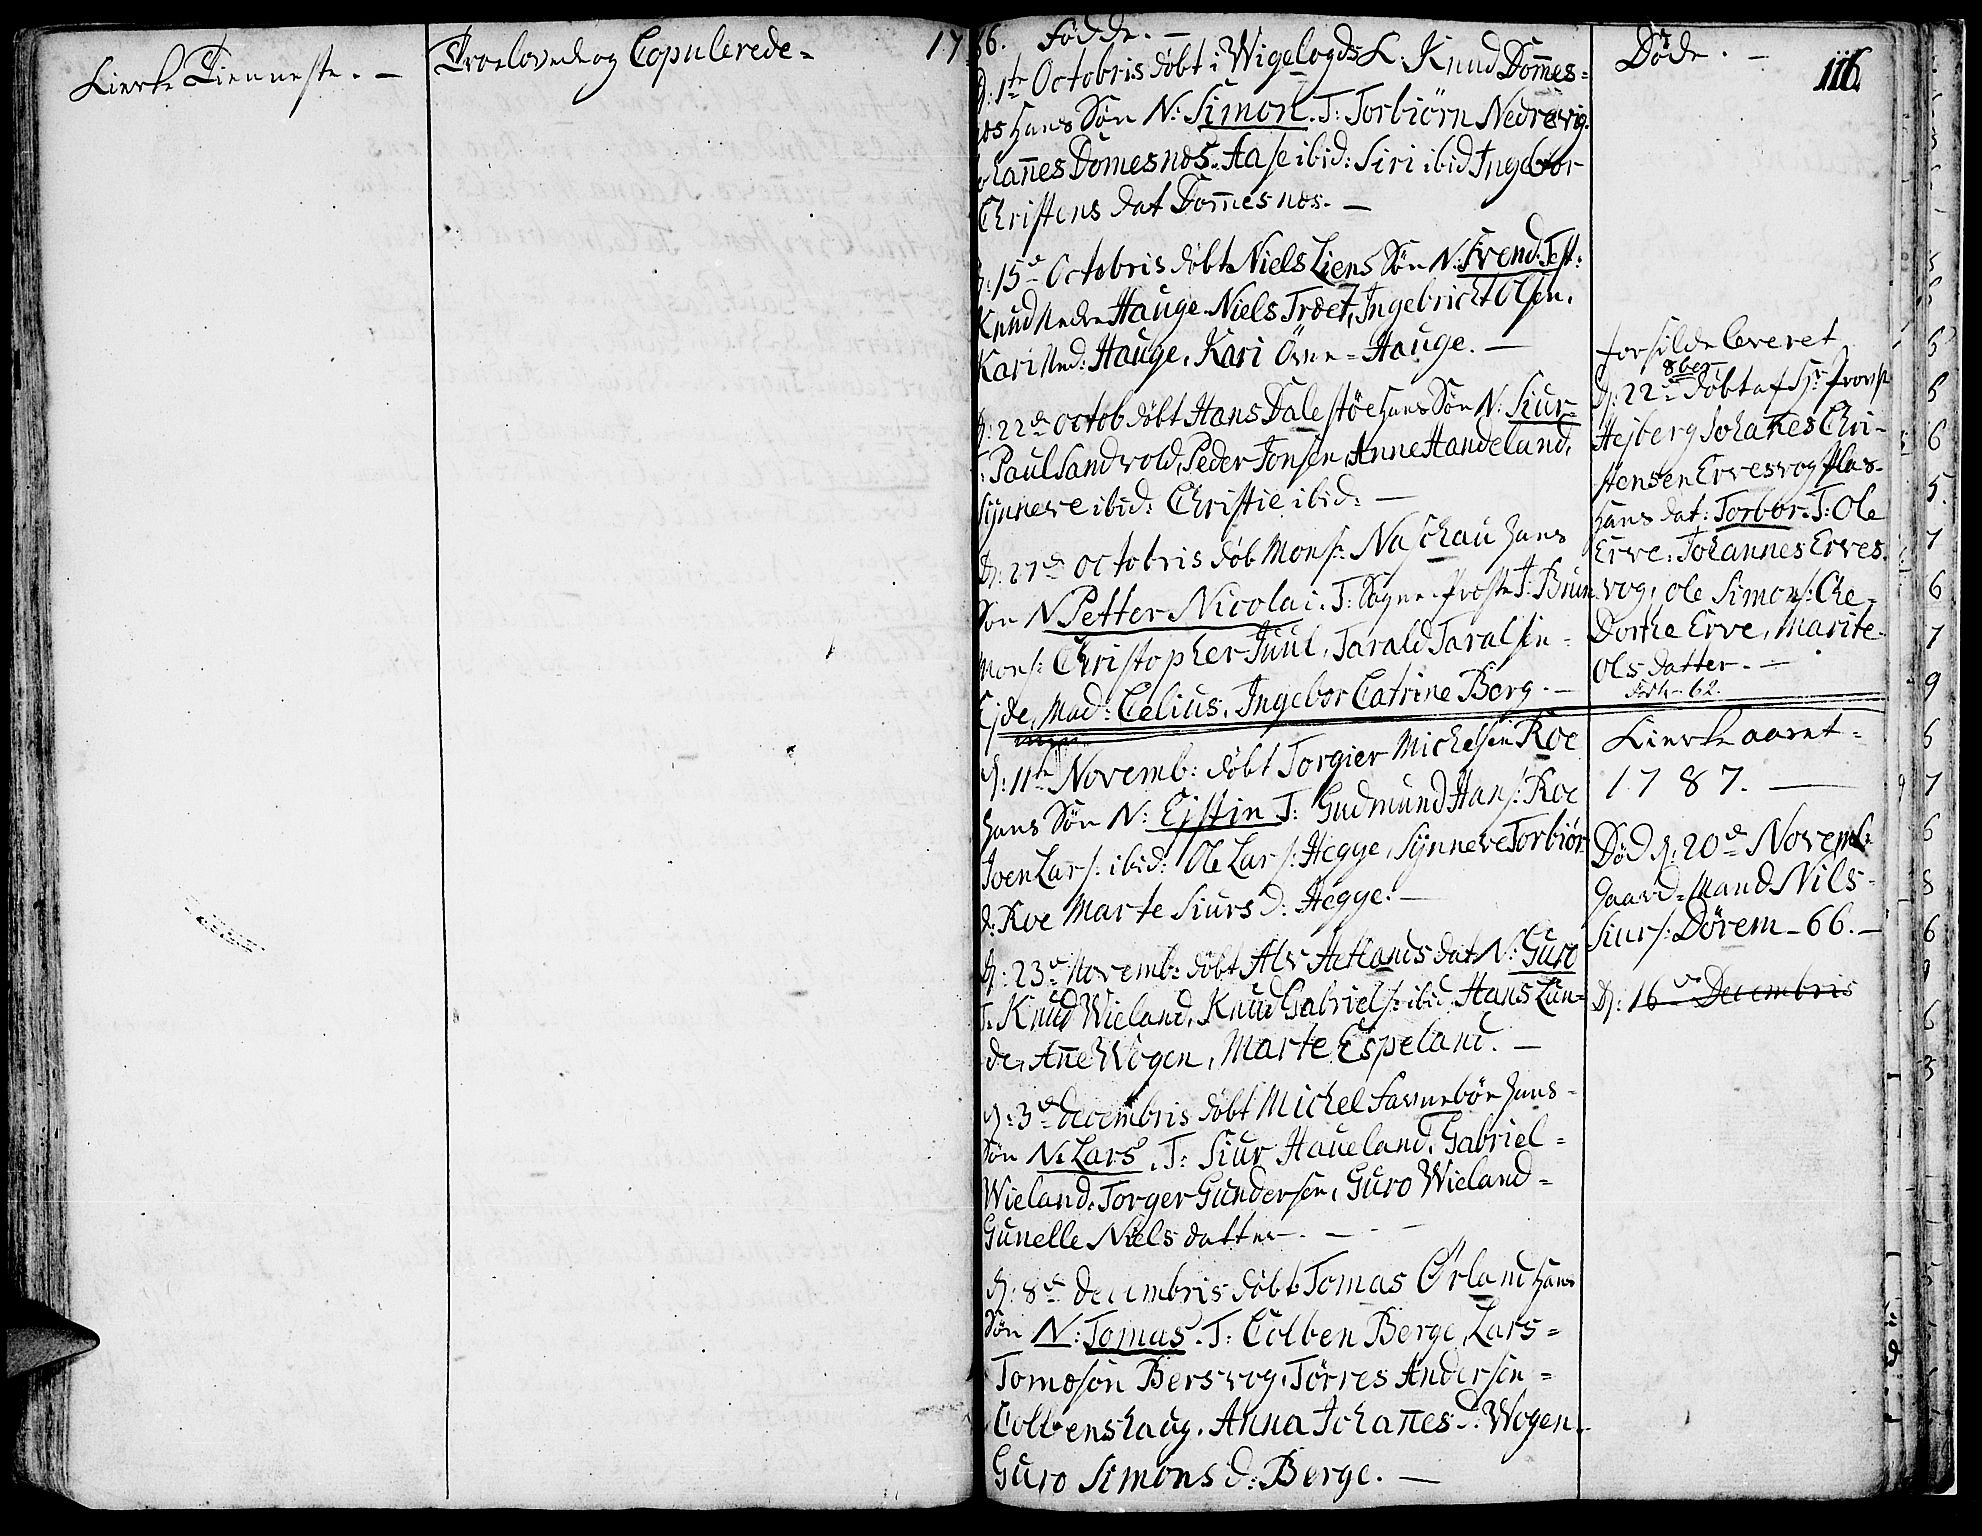 Kierke Tienneste. —
Troelovede og Copulerede =
17
86. Fødde. —
Døde. —
116.
D: 1te Octobris døbt i Wigelogds K: Knud Dom̅es=
nes hans Søn N: Simon. T: Torbiörn Nedrevig
Johan̅es Domesnos. Aase ibid: Siri ibid Ingebor
Christens dat Dom̅esnos. —
D: 15de Octobris døbt Niels Liens Søn N: Svend. Test:
Knud Nedre Hauge. Niels Troet, Ingebricht Olsen.
Kari Ned: Hauge, Kari Övre = Hauge. —
D: 22de Octob døbt Hans Dalestöe hans Søn N: Siur
T: Paul Sandvold, Peder Jonsen, Anne Handeland,
Synneve ibid: Christie ibid: —
D: 27de Octobris døb Mons: Naschau hans
Søn N Petter Nicolai. T: Sogne-Proste T: Brun
Mons: Christopher Juul, Tarald Taralsen =
Ejde, Mad: Celius, Ingebor Catrine Berg. —
D: 11te Novemb: døbt Torgier Michelsen Roe
hans Søn N: Ejstin T: Gudmund Hans: Roe
Joen Lars: ibid: Ole Lars: Hegge, Synneve Torbiör
d: Roe Marte Siurs d: Hegge. —
D: 23de Novemb: døbt Alv Hetlands dat N: Guro
T. Knud Wieland, Knud Gabriels: ibid Hans Lun=
de, An̅e Wogen, Marte Espeland. —
D: 3de Decembris døbt Michel Favnebøe hans =
Søn N: Lars. T: Siur Haueland, Gabriel =
Wieland, Torger Gundersen, Guro Wieland =
Gunelle Niels datter. — —
D: 8de Decembris døbt Tomas Ørland hans
Søn N: Tomas. T: Colben Berge, Lars =
Tomæson Bersvog, Törres Andersen =
Colbenshaug. Anna Johan̅es d: Wogen
Guro Simons d: Berge. —
forsilde leveret
8ber
D: 22de døbt af Hr: Provst
Hejberg Johan̅es Chri-
stensen Ervesvog Plas-
hans dat: Torbor. T: Ole
Erve. Johannes Erves.
vog, Ole Simons: Che=
Dorthe Erve, Marite
Ols datter. —
62.
Kierke aaret =
1787. —
Død D: 20de Novemb:
Gaard=Mand Nils =
Siurs: Dörem – 66. —
D: 16de Decembris